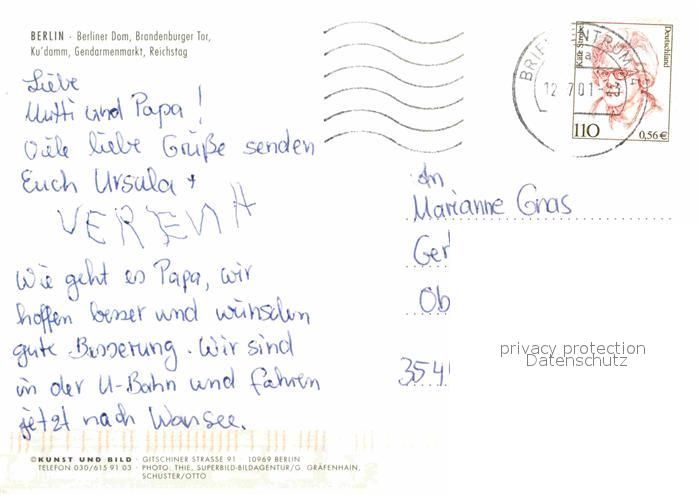 BERLIN · Berliner Dom, Brandenburger Tor,
Ku'damm, Gendarmenmarkt, Reichstag
Liebe
Mutti und Papa!
Viele liebe Grüße senden
Euch Ursula +
VERENA
Wie geht es Papa, wir
hoffen besser und wünschen
gute Besserung. Wir sind
in der U-Bahn und fahren
jetzt nach Wansee.
© KUNST UND BILD · GITSCHINER STRASSE 91 · 10969 BERLIN
TELEFON 030/615 91 03 · PHOTO: THIE, SUPERBILD-BILDAGENTUR/G. GRÄFENHAIN,
SCHUSTER/OTTO
BRIEFZENTRUM
12.7.01-
Deutschland
110
0,56 €
An
Marianne Gnas
Ger
Ob
354
privacy protection
Datenschutz